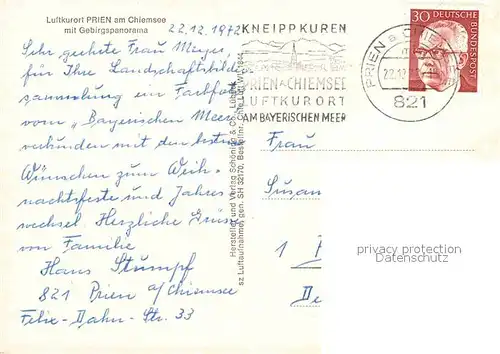 Luftkurort PRIEN am Chiemsee
mit Gebirgspanorama
22.12.1972
Sehr geehrte Frau Meyer,
für Ihre Landschaftsbilder
sammlung ein Farbfoto
vom „Bayerischen Meer"
verbunden mit den besten
Wünschen zum Weih-
nachtsfeste und Jahres
wechsel. Herzliche Grüße
von Familie
Hans Stumpf
821 Prien a/Chiemsee
Felix-Dahn-Str. 33
Hersteller und Verlag Schöning & Co., Lübeck
sz Luftaufnahmen gen. SH 32170, Bestellnr. Chie
KNEIPPKUREN
PRIEN A. CHIEMSEE
LUFTKURORT
AM BAYERISCHEN MEER
PRIEN
22.12
821
30 DEUTSCHE
BUNDESPOST
Frau
Susan
privacy protection
Datenschutz